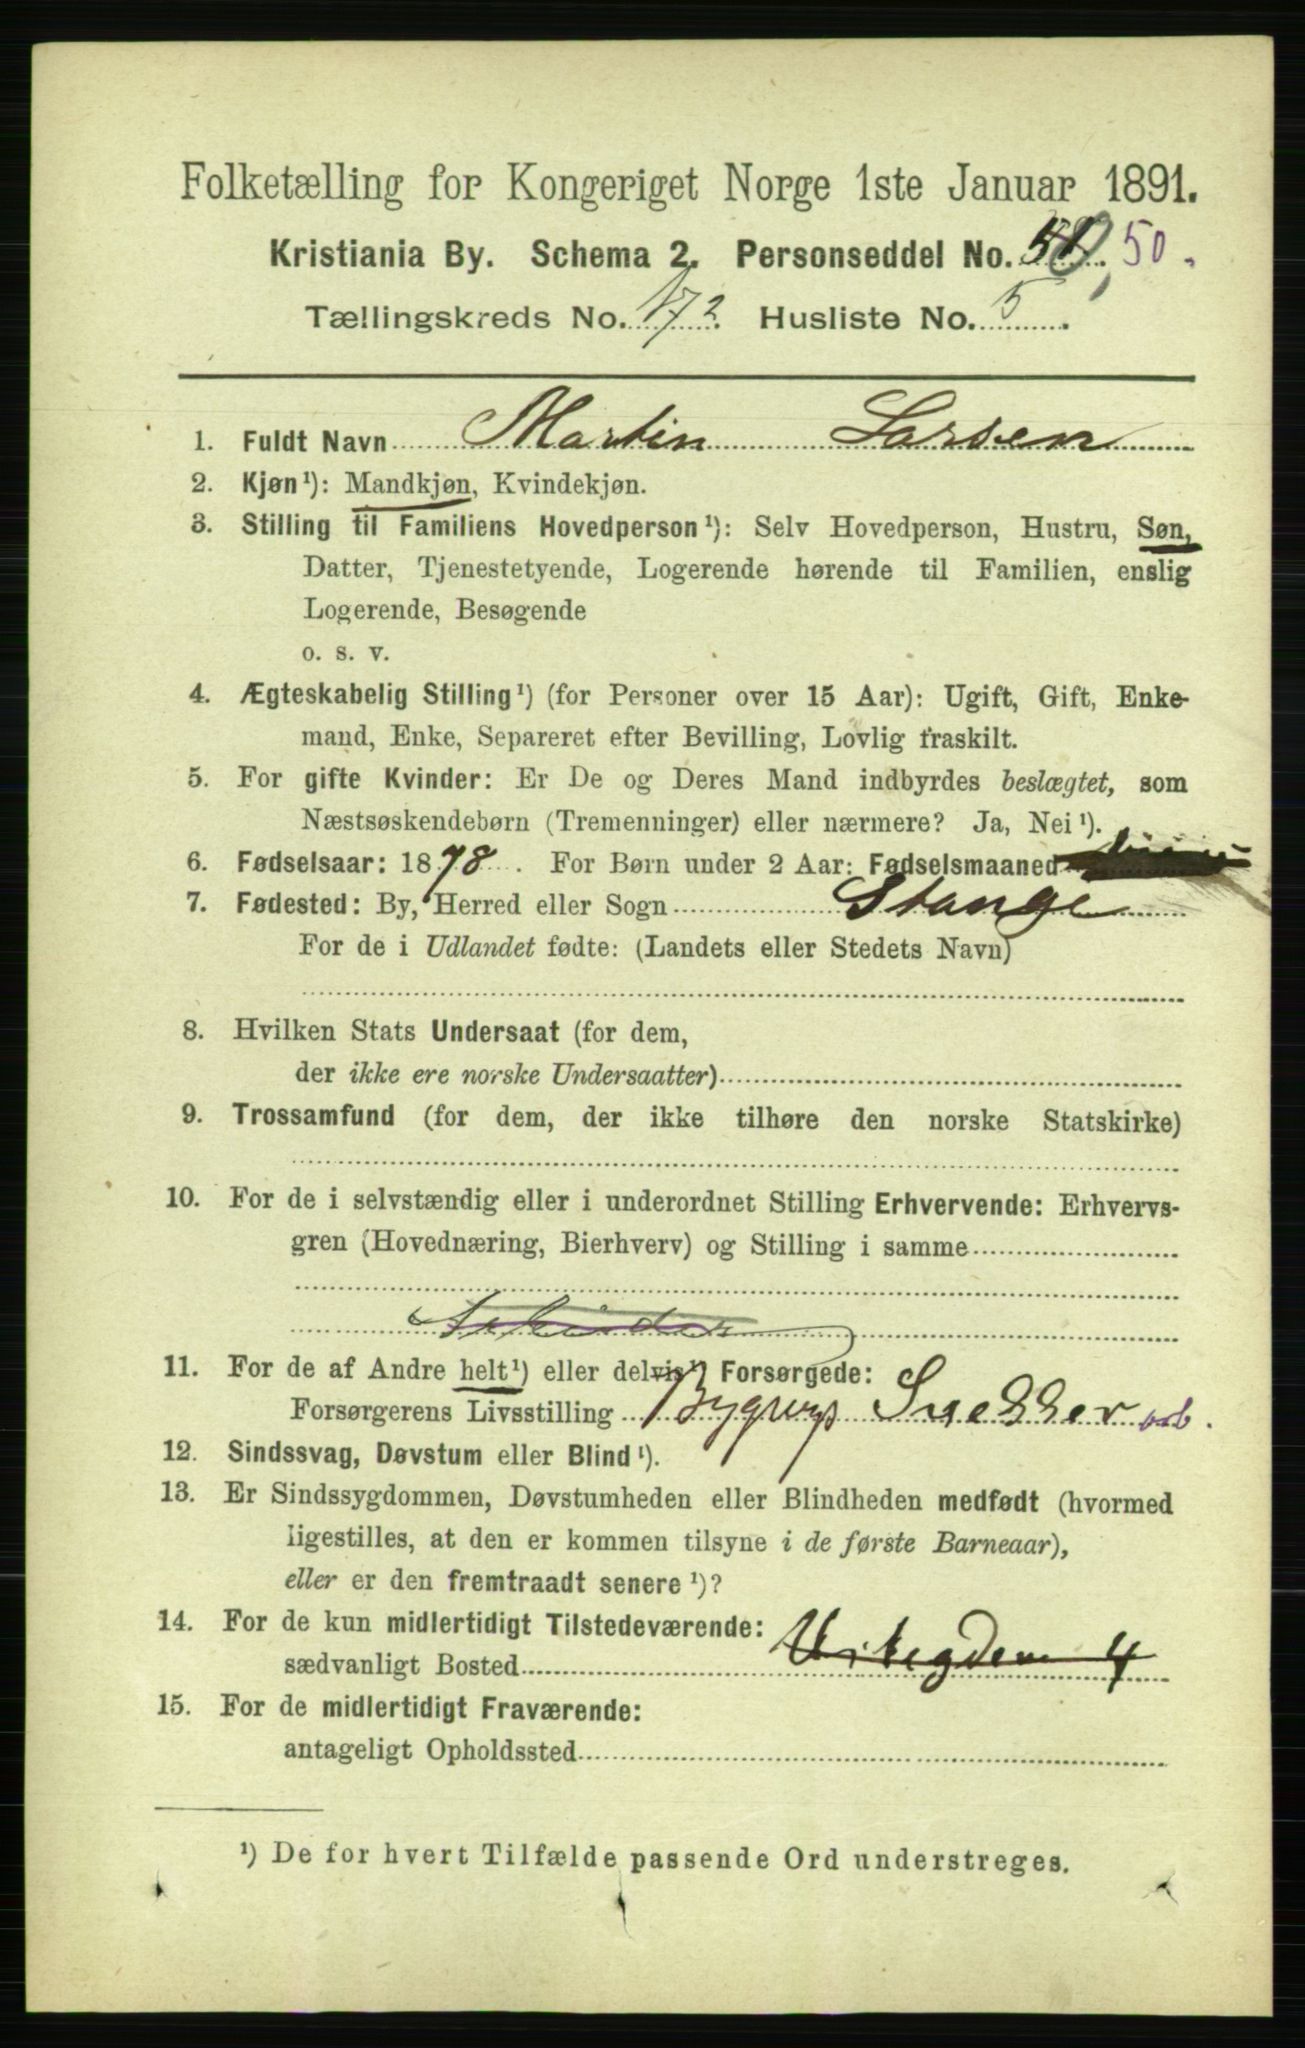 Folketælling for Kongeriget Norge 1ste Januar 1891.
Kristiania By. Schema 2. Personseddel No. 50.
Tællingskreds No. 172. Husliste No. 5.
1. Fuldt Navn Martin Larsen
2. Kjøn¹): Mandkjøn, Kvindekjøn.
3. Stilling til Familiens Hovedperson¹): Selv Hovedperson, Hustru, Søn,
Datter, Tjenestetyende, Logerende hørende til Familien, enslig
Logerende, Besøgende
o. s. v.
4. Ægteskabelig Stilling¹) (for Personer over 15 Aar): Ugift, Gift, Enke-
mand, Enke, Separeret efter Bevilling, Lovlig fraskilt.
5. For gifte Kvinder: Er De og Deres Mand indbyrdes beslægtet, som
Næstsøskendebørn (Tremenninger) eller nærmere? Ja, Nei¹).
6. Fødselsaar: 1878. For Børn under 2 Aar: Fødselsmaaned
7. Fødested: By, Herred eller Sogn Stange
For de i Udlandet fødte: (Landets eller Stedets Navn)
8. Hvilken Stats Undersaat (for dem,
der ikke ere norske Undersaatter)
9. Trossamfund (for dem, der ikke tilhøre den norske Statskirke)
10. For de i selvstændig eller i underordnet Stilling Erhvervende: Erhvervs-
gren (Hovednæring, Bierhverv) og Stilling i samme
11. For de af Andre helt¹) eller delvis¹) Forsørgede:
Forsørgerens Livsstilling Bygnings Snekker arb.
12. Sindssvag, Døvstum eller Blind¹).
13. Er Sindssygdommen, Døvstumheden eller Blindheden medfødt (hvormed
ligestilles, at den er kommen tilsyne i de første Barneaar),
eller er den fremtraadt senere¹)?
14. For de kun midlertidigt Tilstedeværende:
sædvanligt Bosted 4
15. For de midlertidigt Fraværende:
antageligt Opholdssted
¹) De for hvert Tilfælde passende Ord understreges.